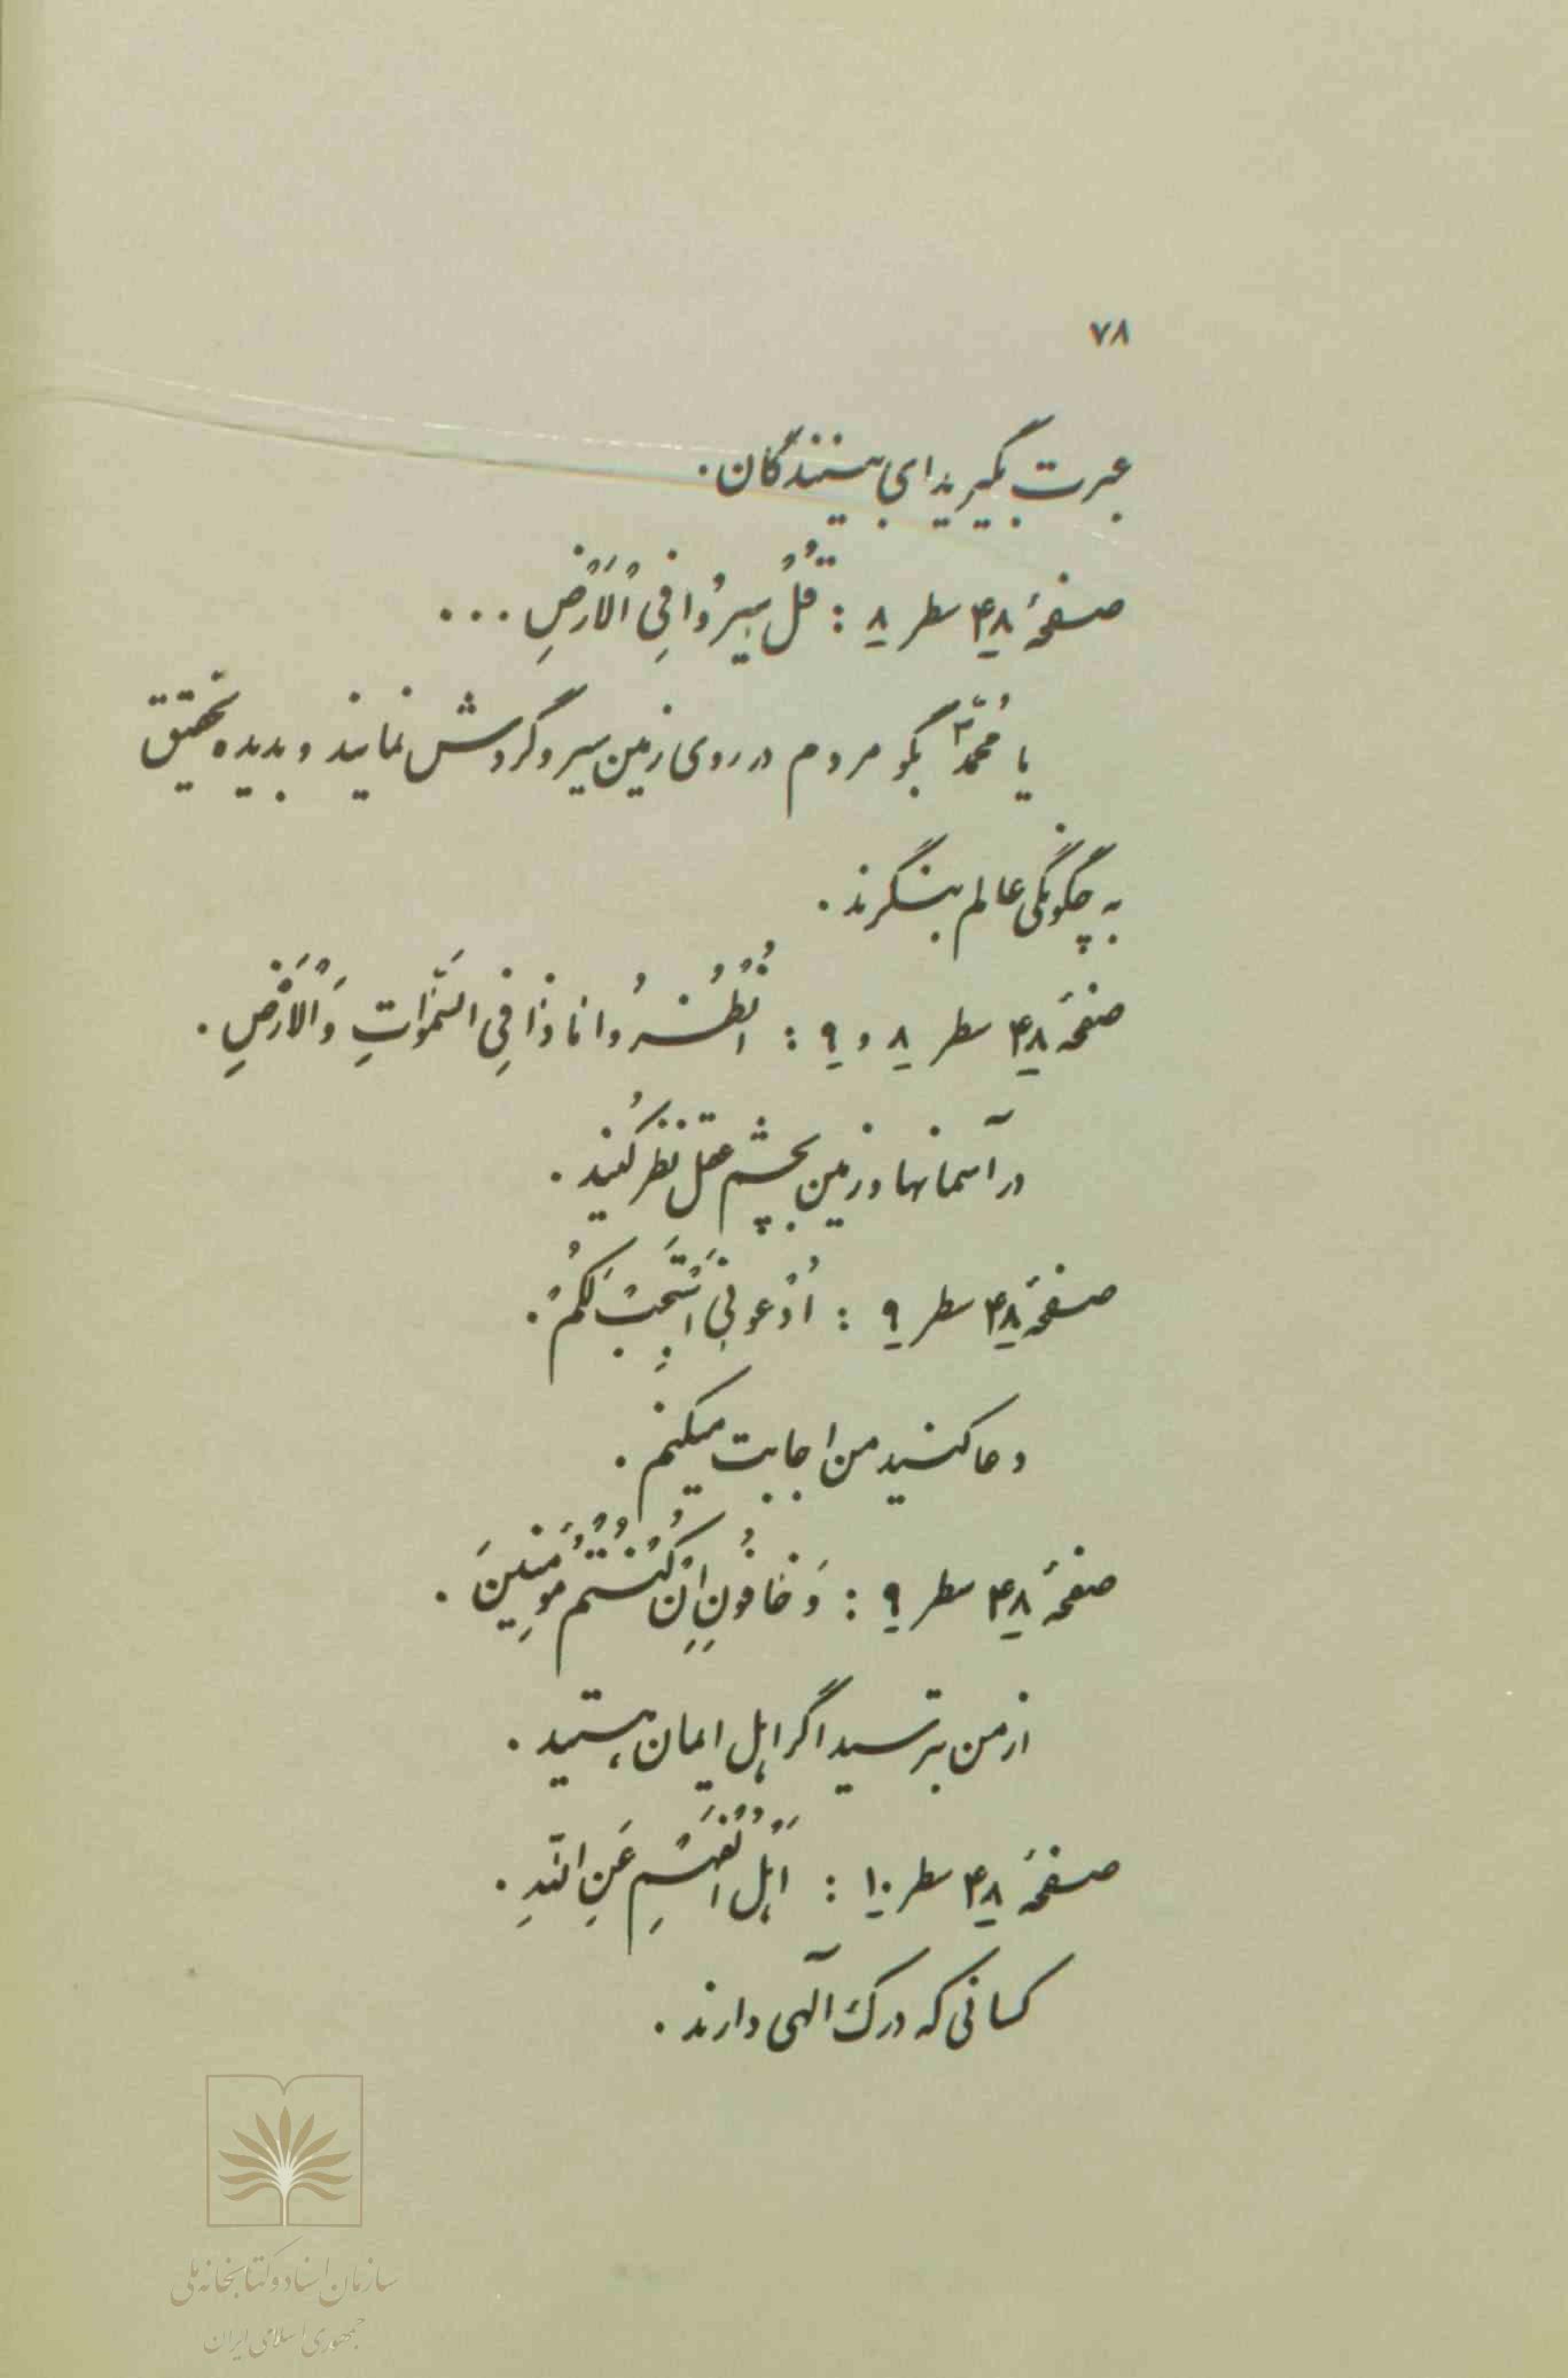 ۷۸
عبرت بگیرید ای بینندگان.
صفحهٔ ۴۸ سطر ۸ : قُلْ سیرُوا فِی الْاَرْضِ ...
یا مُحمّد بگو مردم در روی زمین سیر و گردش نمایند و بدیده تحقیق
به چگونگی عالم بنگرند.
صفحهٔ ۴۸ سطر ۸ و ۹ : اُنْظُرُوا ماذا فِی السَّمٰواتِ وَ الْاَرْضِ.
در آسمانها و زمین بچشم عقل نظر کُنید.
صفحهٔ ۴۸ سطر ۹ : اُدْعونی اَسْتَجِبْ لَکُمْ.
دعا کنید من اجابت میکنم.
صفحهٔ ۴۸ سطر ۹ : وَ خافُونِ اِنْ کُنْتُمْ مُؤْمِنینَ.
از من بترسید اگر اهل ایمان هستید.
صفحهٔ ۴۸ سطر ۱۰ : اَهْلُ الْفَهْمِ عَنِ اللّهِ.
کسانی که درک آلهی دارند.
سازمان اسناد و کتابخانه ملی
جمهوری اسلامی ایران